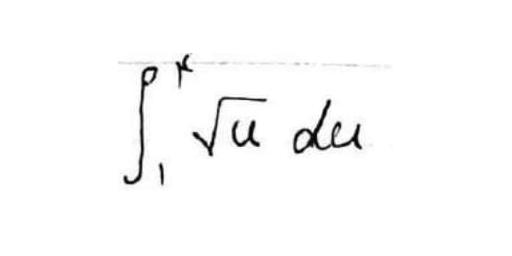 ∫₁ √u du